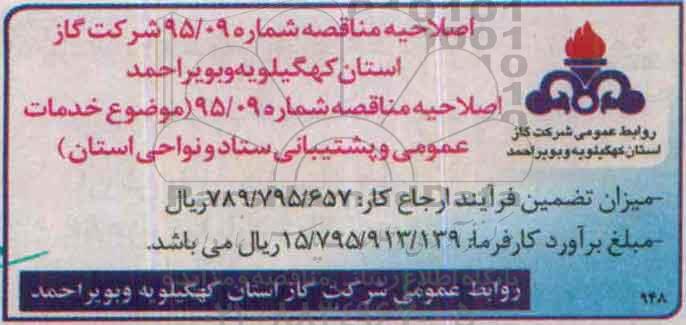 اصلاحیه مناقصه شماره ۹۵/۰۹ شرکت گاز
استان کهگیلویه‌وبویراحمد
اصلاحیه مناقصه شماره ۹۵/۰۹ (موضوع خدمات
عمومی وپشتیبانی ستاد و نواحی استان)
روابط عمومی شرکت گاز
استان کهگیلویه و بویراحمد
-میزان تضمین فرآیند ارجاع کار: ۷۸۹/۷۹۵/۶۵۷ریال
-مبلغ برآورد کارفرما: ۱۵/۷۹۵/۹۱۳/۱۳۹ریال می باشد.
روابط عمومی شرکت گاز استان کهگیلویه وبویراحمد
۹۴۸